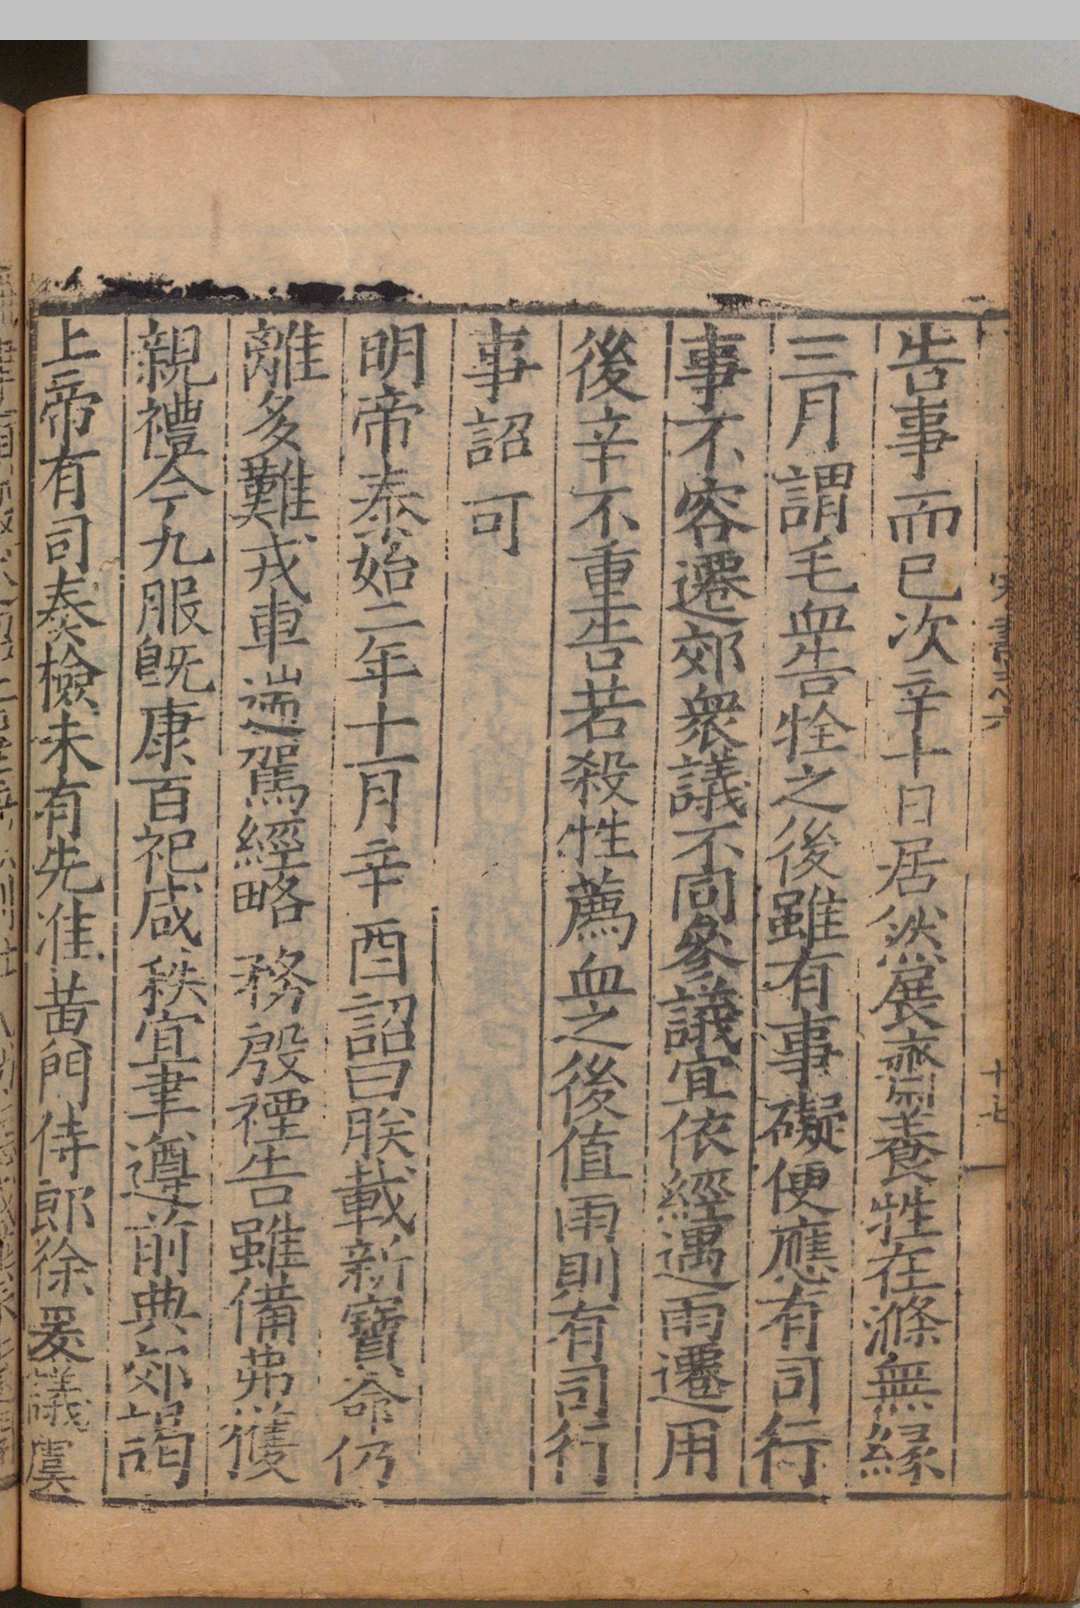 告事而已次辛十日居然展齋養牲在滌無緣
三月謂毛血告牷之後雖有事礙便應有司行
事不容遷郊衆議不同參議宜依經遇雨遷用
後辛不重告若殺牲薦血之後值雨則有司行
事詔可
明帝泰始二年十一月辛酉詔曰朕載新寶命仍
離多難戎車遄駕經略務殷禋告雖備弗獲
親禮今九服旣康百祀咸秩宜聿遵前典郊謁
上帝有司奏檢未有先准黃門侍郎徐爰議虞